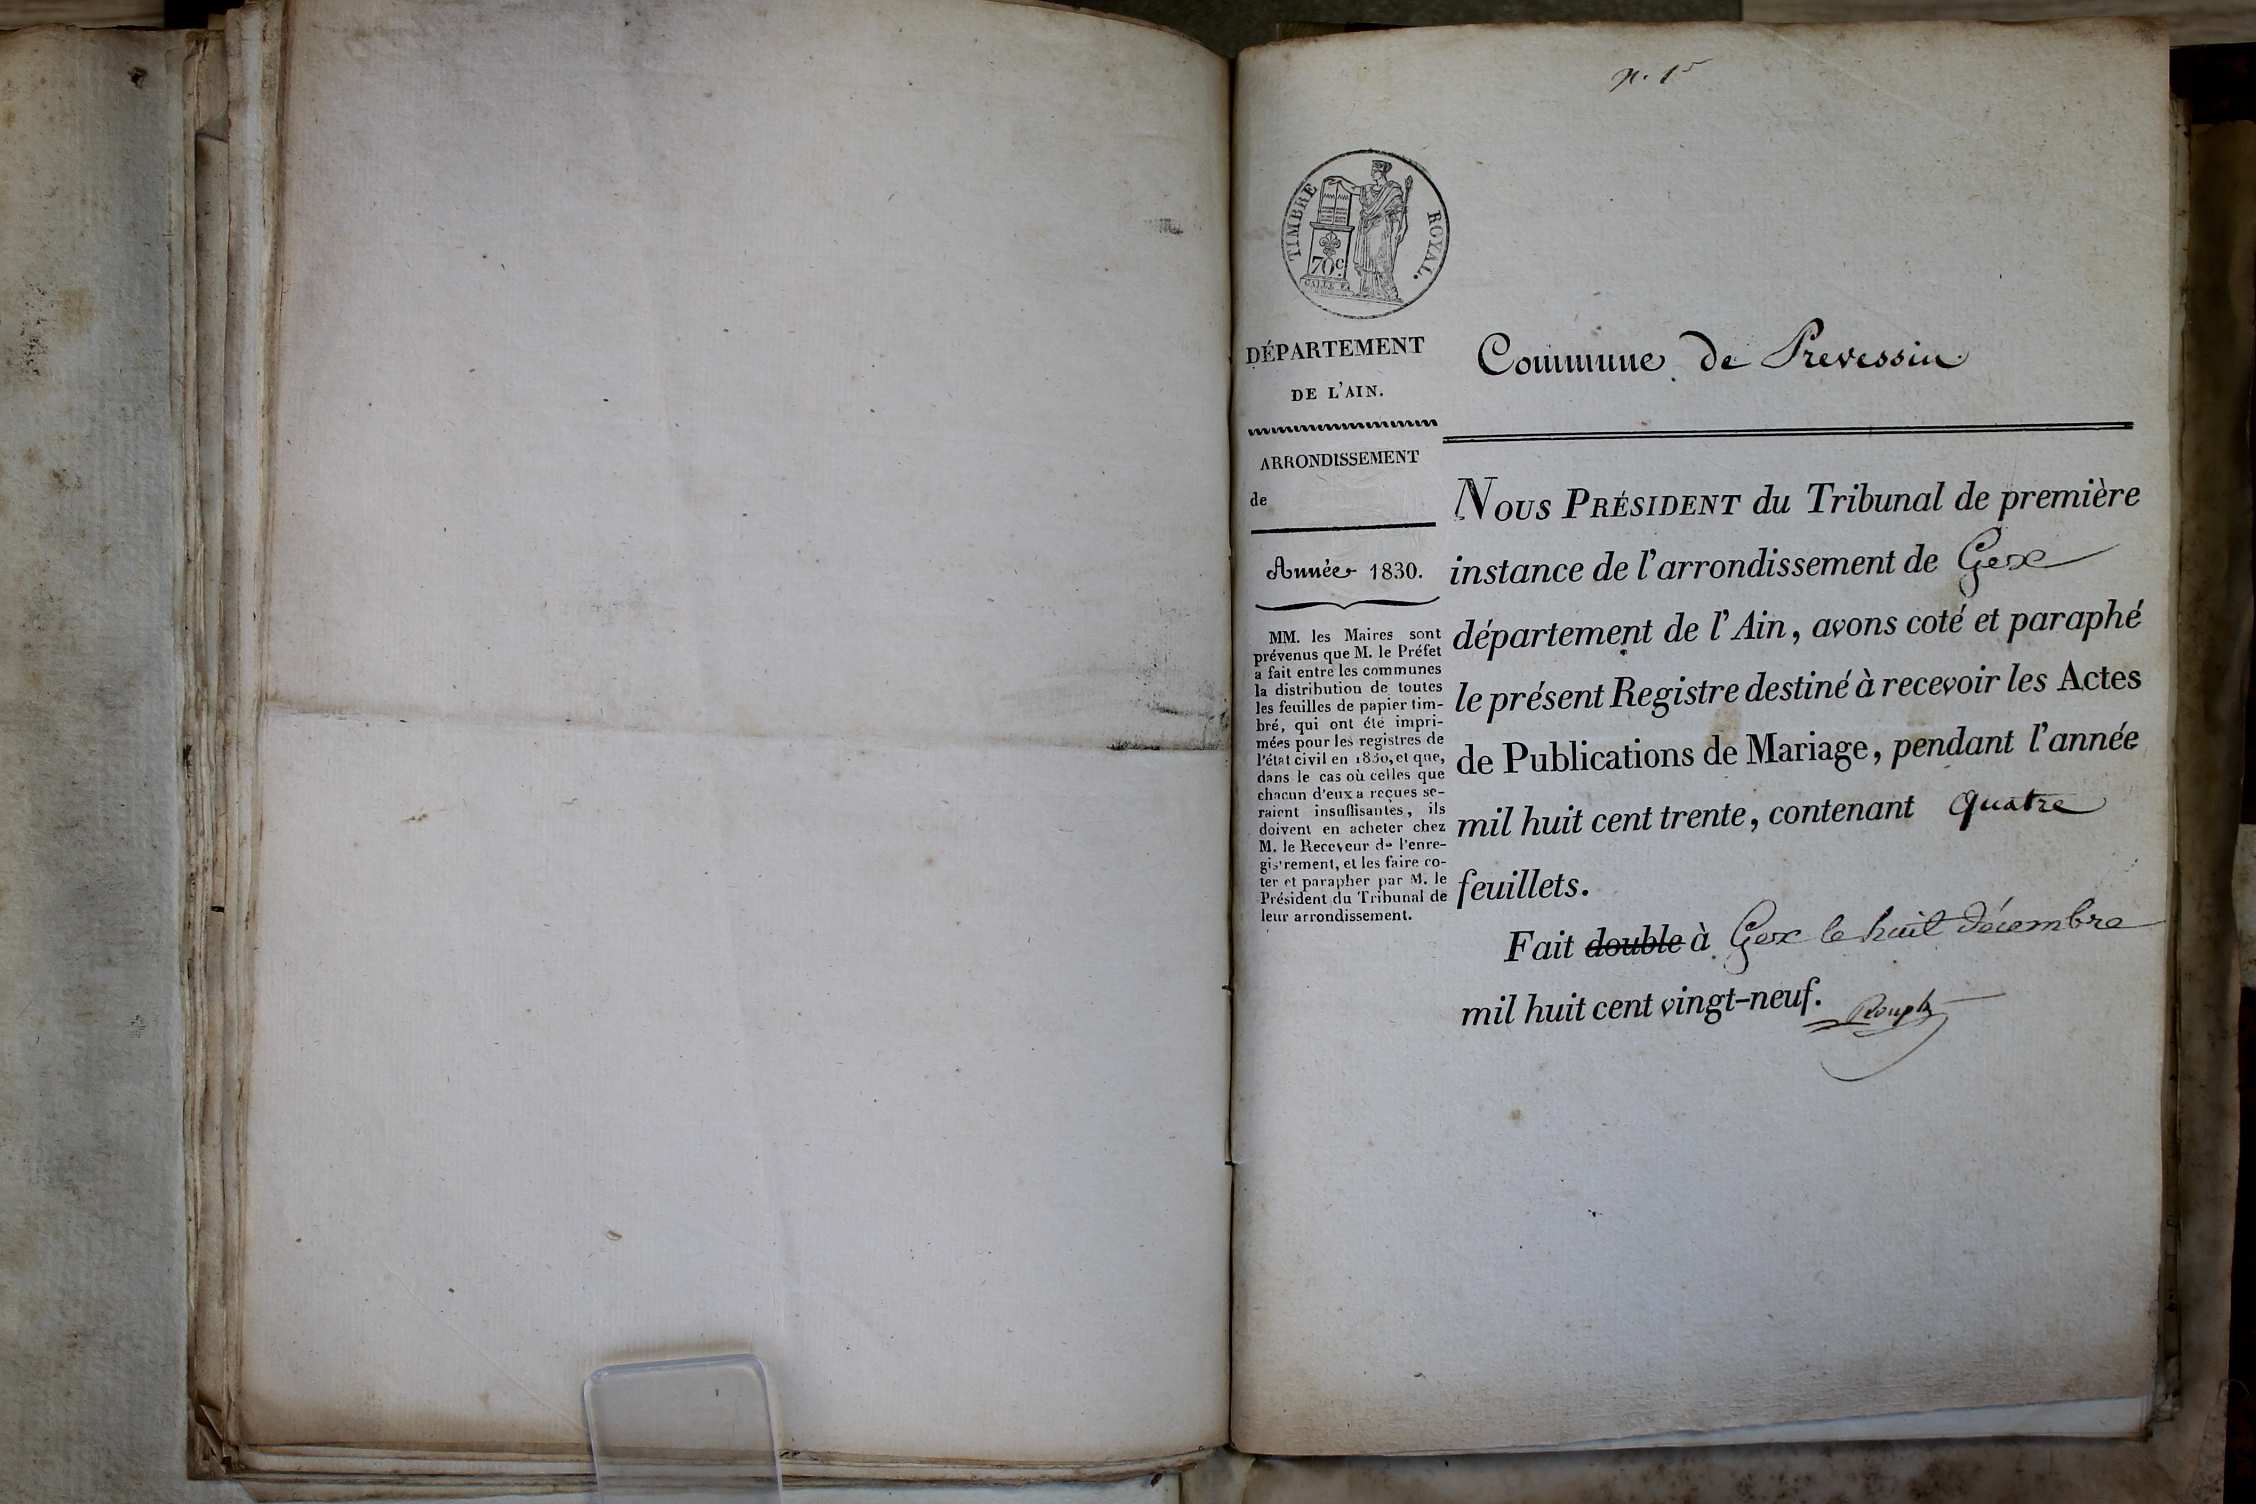 n. 1er
TIMBRE ROYAL.
70c.
DÉPARTEMENT
DE L'AIN.
ARRONDISSEMENT
de
Année 1830.
MM. les Maires sont
prévenus que M. le Préfet
a fait entre les communes
la distribution de toutes
les feuilles de papier tim-
bré, qui ont été impri-
mées pour les registres de
l'état civil en 1830, et que,
dans le cas où celles que
chacun d'eux a reçues se-
raient insuffisantes, ils
doivent en acheter chez
M. le Receveur de l'enre-
gistrement, et les faire co-
ter et parapher par M. le
Président du Tribunal de
leur arrondissement.
Commune de Prevessin
NOUS PRÉSIDENT du Tribunal de première
instance de l'arrondissement de Gex
département de l'Ain, avons coté et paraphé
le présent Registre destiné à recevoir les Actes
de Publications de Mariage, pendant l'année
mil huit cent trente, contenant quatre
feuillets.
Fait double à Gex le huit décembre
mil huit cent vingt-neuf.